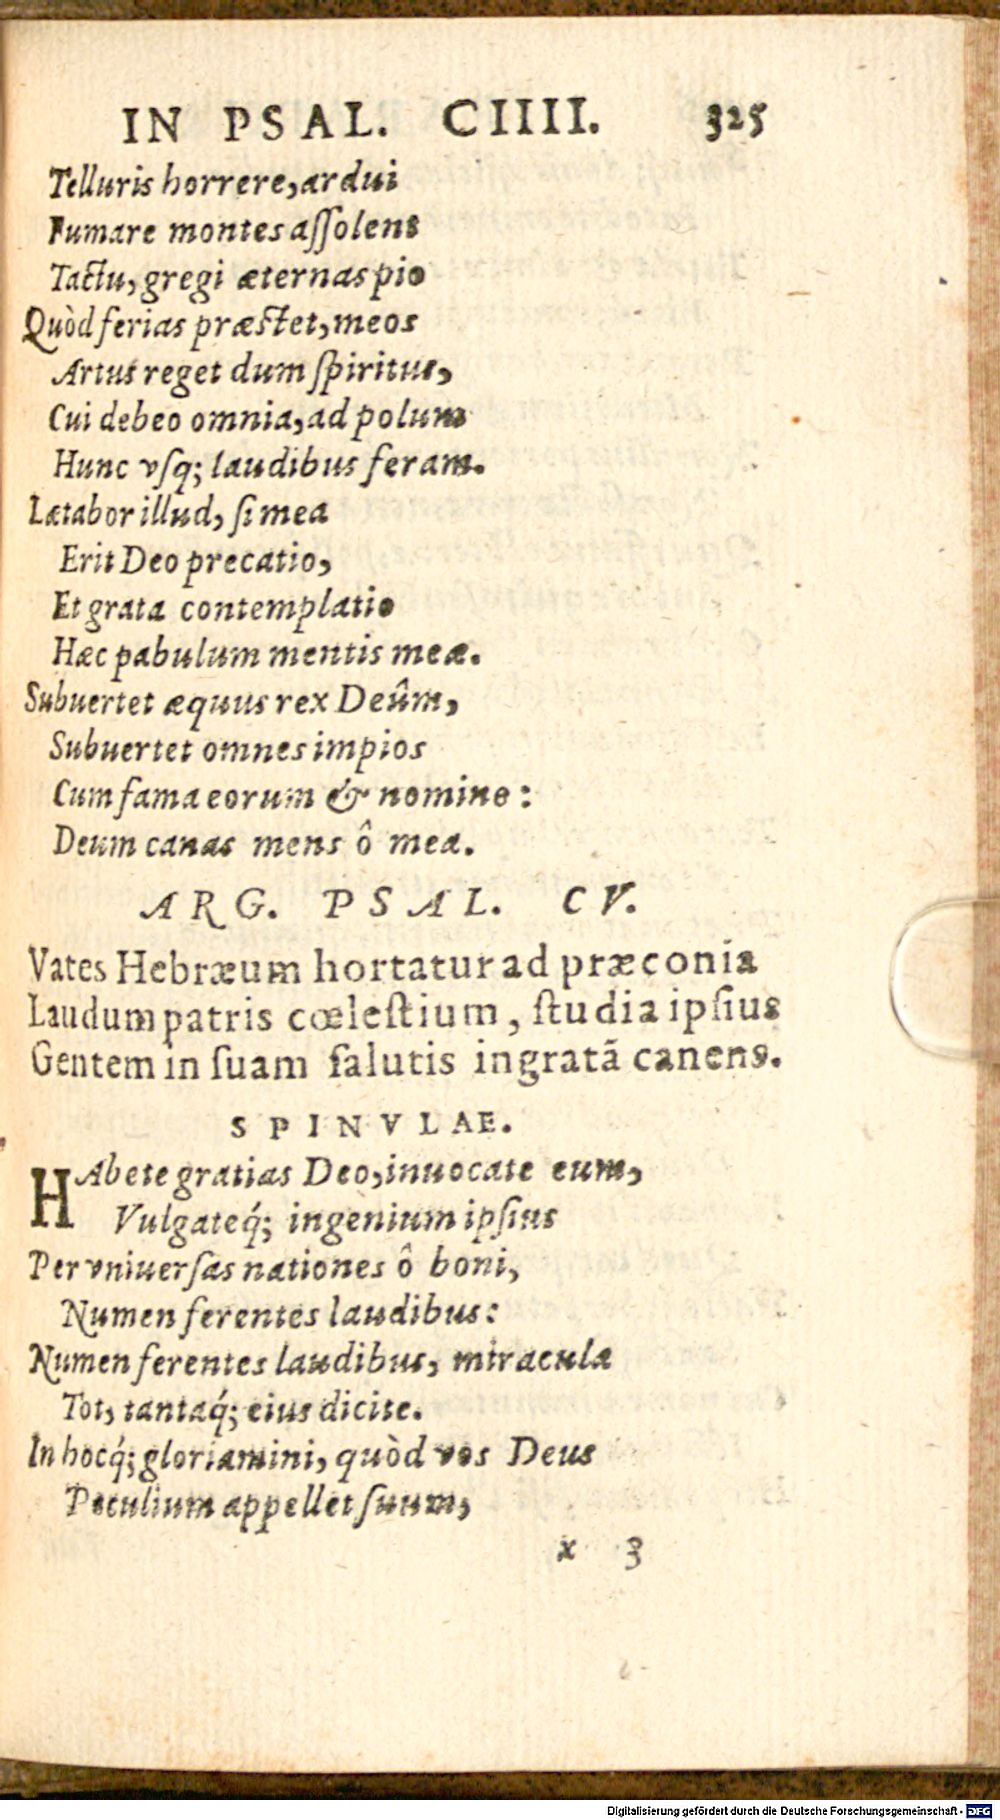 IN PSAL. CIIII. 325
Telluris horrere, ardui
Fumare montes aſſolent
Tactu, gregi æternas pio
Quòd ferias præſtet, meos
Artus reget dum ſpiritus,
Cui debeo omnia, ad polum
Hunc vſq; laudibus feram.
Lætabor illud, ſi mea
Erit Deo precatio,
Et grata contemplatio
Hæc pabulum mentis meæ.
Subuertet æquus rex Deûm,
Subuertet omnes impios
Cum fama eorum & nomine:
Deum canas mens ô mea.
ARG. PSAL. CV.
Vates Hebræum hortatur ad præconia
Laudum patris cœleſtium, ſtudia ipſius
Gentem in ſuam ſalutis ingratã canens.
SPINVLAE.
HAbete gratias Deo, inuocate eum,
Vulgateq́; ingenium ipſius
Per vniuerſas nationes ô boni,
Numen ferentes laudibus:
Numen ferentes laudibus, miracula
Tot, tantaq́; eius dicite.
In hocq́; gloriamini, quòd vos Deus
Peculium appellet ſuum,
x 3
Digitalisierung gefördert durch die Deutsche Forschungsgemeinschaft - DFG